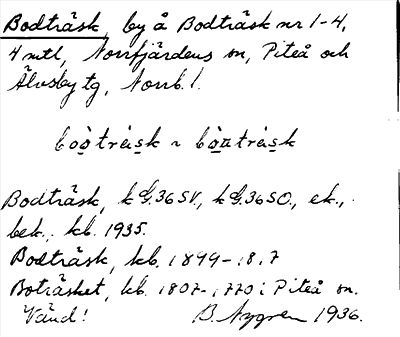 Bodträsk, by å Bodträsk nr 1-4,
4 mtl, Norrfjärdens sn, Piteå och
Älvsby tg, Norrb. l.
boòtrèsk ~ bòatrèsk
Bodträsk, k G.36 SV., k G.36 SO., ek.,
bek., kb. 1935.
Bodträsk, kb. 1899-
Boträsket, kb. 1807-1770 i Piteå sn.
Vänd! B. Nygren 1936.